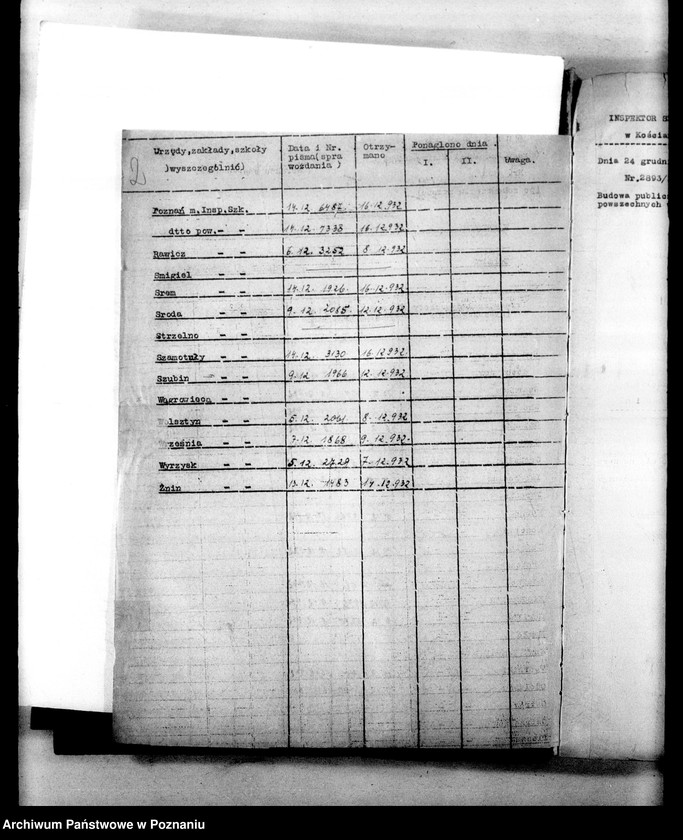 2
Urzędy,zakłady,szkoły
)wyszczególnić)
Data i Nr.
pisma(spra
wozdania )
Otrzy-
mano
Ponaglono dnia .
I. II.
Uwaga.
Poznań m.Insp.Szk. 14.12 6487 16.12.932
dtto pow.- - 14.12 7338 16.12.932
Rawicz - - 6.12. 3252 8.12.932
Smigiel - -
Srem - - 14.12. 1926. 16.12.932
Sroda - - 9.12. 2085. 12.12.932
Strzelno - -
Szamotuły - - 14.12 3130 16.12.932
Szubin - - 9.12 1966 12.12.932
Wągrowiec - -
Wolsztyn - - 5.12. 2061 8.12.932
Września - - 7.12. 1868 9.12.932.
Wyrzysk - - 5.12. 2729 7.12.932
Żnin - - 13.12. 1483 14.12.932
INSPEKTOR
w Kościa
Dnia 24 grudni
Nr.2893/
Budowa public
powszechnych
Archiwum Państwowe w Poznaniu